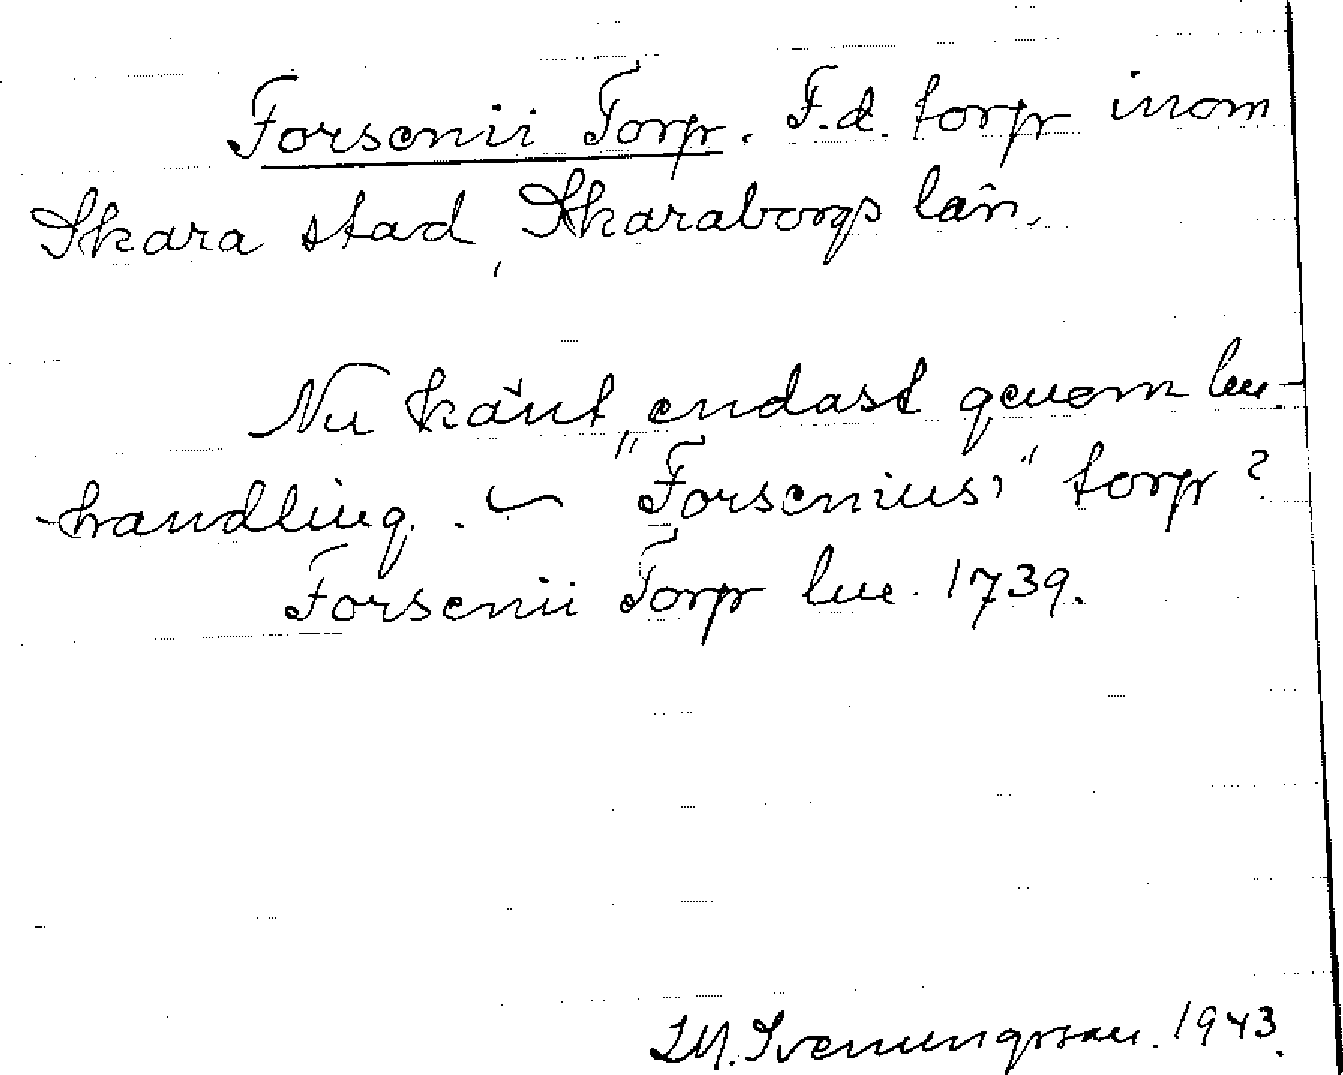 Forsenii Torp. F.d. torp inom
Skara stad, Skaraborgs län.
Nu känt endast genom lm-
handling. — "Forsenius'" torp?
Forsenii Torp lm. 1739.
M. Svenungsson. 1943.